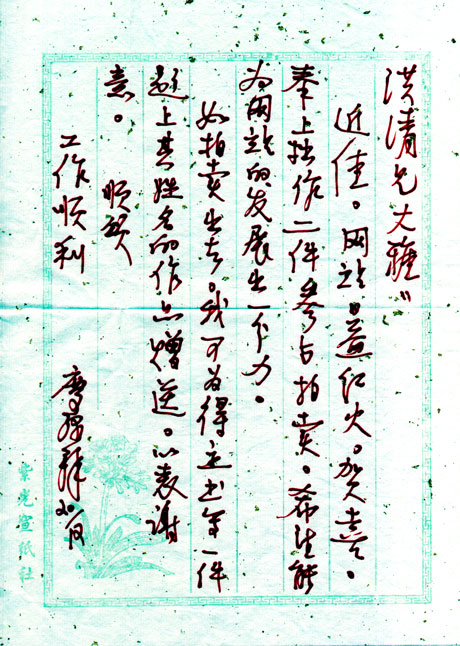 洪清兄大雅：
近佳。网站日益红火。贺喜。
奉上拙作二件参与拍卖。希望能
为网站的发展出一分力。
如拍卖出去。我可为得主书写一件
题上其姓名的作品赠送。以表谢
意。
顺颂
工作顺利
紫光宣纸社